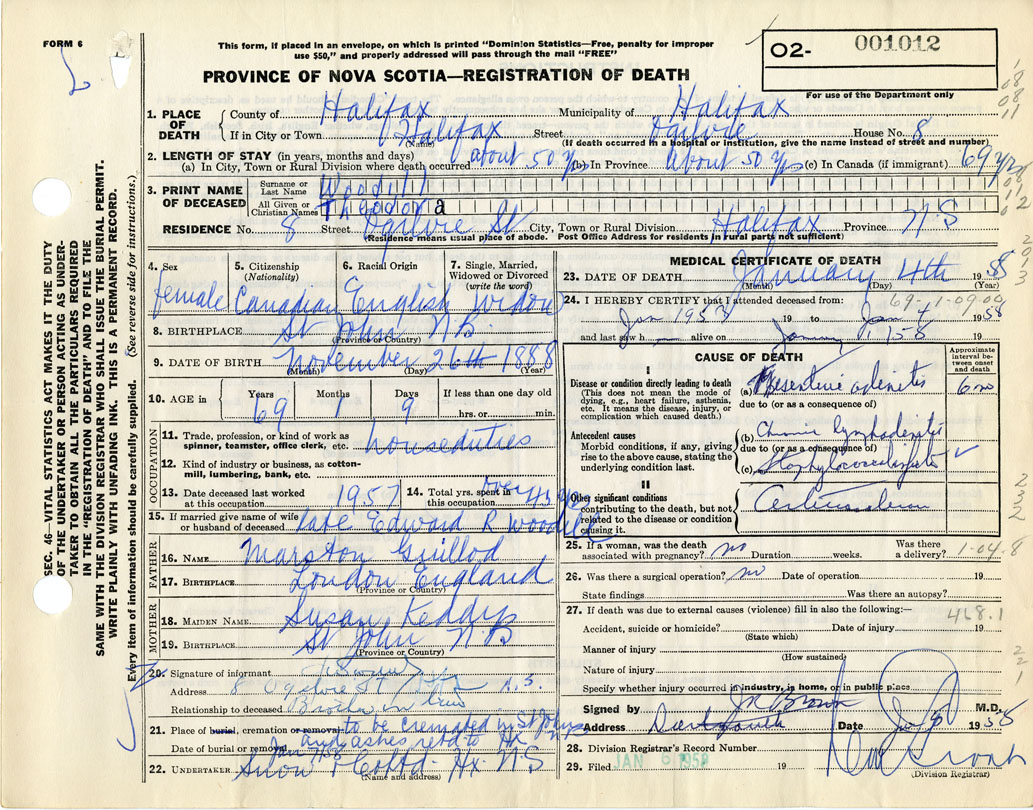 FORM 6
This form, if placed in an envelope, on which is printed "Dominion Statistics—Free, penalty for improper
use $50," and properly addressed will pass through the mail "FREE"
PROVINCE OF NOVA SCOTIA—REGISTRATION OF DEATH
O2- 001012
For use of the Department only
SEC. 46—VITAL STATISTICS ACT MAKES IT THE DUTY
OF THE UNDERTAKER OR PERSON ACTING AS UNDER-
TAKER TO OBTAIN ALL THE PARTICULARS REQUIRED
IN THE "REGISTRATION OF DEATH" AND TO FILE THE
SAME WITH THE DIVISION REGISTRAR WHO SHALL ISSUE THE BURIAL PERMIT.
WRITE PLAINLY WITH UNFADING INK. THIS IS A PERMANENT RECORD.
Every item of information should be carefully supplied. (See reverse side for instructions.)
1. PLACE OF DEATH
County of Halifax Municipality of Halifax
If in City or Town Halifax Street Ogilvie House No. 8
(Name) (If death occurred in a hospital or institution, give the name instead of street and number)
2. LENGTH OF STAY (in years, months and days)
(a) In City, Town or Rural Division where death occurred about 50 yrs (b) In Province about 50 yrs (c) In Canada (if immigrant) 69 yrs
3. PRINT NAME OF DECEASED
Surname or Last Name Woodill
All Given or Christian Names Theodora
RESIDENCE No. 8 Street Ogilvie St City, Town or Rural Division Halifax Province N.S
(Residence means usual place of abode. Post Office Address for residents in rural parts not sufficient)
4. Sex female
5. Citizenship (Nationality) Canadian
6. Racial Origin English
7. Single, Married, Widowed or Divorced (write the word) widow
8. BIRTHPLACE St John N.B.
(Province or Country)
9. DATE OF BIRTH November 26th 1888
(Month) (Day) (Year)
10. AGE in Years 69 Months 1 Days 9 If less than one day old
hrs. or min.
OCCUPATION
11. Trade, profession, or kind of work as spinner, teamster, office clerk, etc. houseduties
12. Kind of industry or business, as cotton-mill, lumbering, bank, etc.
13. Date deceased last worked at this occupation 1957
14. Total yrs. spent in this occupation over 45 yrs
15. If married give name of wife or husband of deceased late Edward R Woodill
FATHER
16. NAME Marston Guillod
17. BIRTHPLACE London England
(Province or Country)
MOTHER
18. MAIDEN NAME Susan Keddy
19. BIRTHPLACE St John N B
(Province or Country)
20. Signature of informant
Address 8 Ogilvie St N.S.
Relationship to deceased Brother in law
21. Place of burial, cremation or removal to be cremated in St John
Date of burial or removal and ashes retd to Hx NS
22. UNDERTAKER Snow & Co Ltd - Hx. N.S
(Name and address)
MEDICAL CERTIFICATE OF DEATH
23. DATE OF DEATH January 4th 1958
(Month) (Day) (Year)
24. I HEREBY CERTIFY that I attended deceased from: 69-1-09.00
Jan 1953 19 to Jan 4 1958
and last saw h alive on January 1958 19
CAUSE OF DEATH
Approximate interval between onset and death
I
Disease or condition directly leading to death
(This does not mean the mode of dying, e.g., heart failure, asthenia, etc. It means the disease, injury, or complication which caused death.)
(a) Mesenteric adenitis 6 mo
due to (or as a consequence of)
Antecedent causes
Morbid conditions, if any, giving rise to the above cause, stating the underlying condition last.
(b) Chronic lymphadenitis
due to (or as a consequence of)
(c)
II
Other significant conditions
contributing to the death, but not related to the disease or condition causing it.
25. If a woman, was the death associated with pregnancy? no Duration weeks. Was there a delivery? 1-04.8
26. Was there a surgical operation? no Date of operation 19
State findings Was there an autopsy?
27. If death was due to external causes (violence) fill in also the following:— 468.1
Accident, suicide or homicide? Date of injury 19
(State which)
Manner of injury
(How sustained)
Nature of injury
Specify whether injury occurred in industry, in home, or in public place
Signed by Brown M.D.
Address Dartmouth Date Jan 5 1958
28. Division Registrar's Record Number
29. Filed JAN 6 1958 19
(Division Registrar)